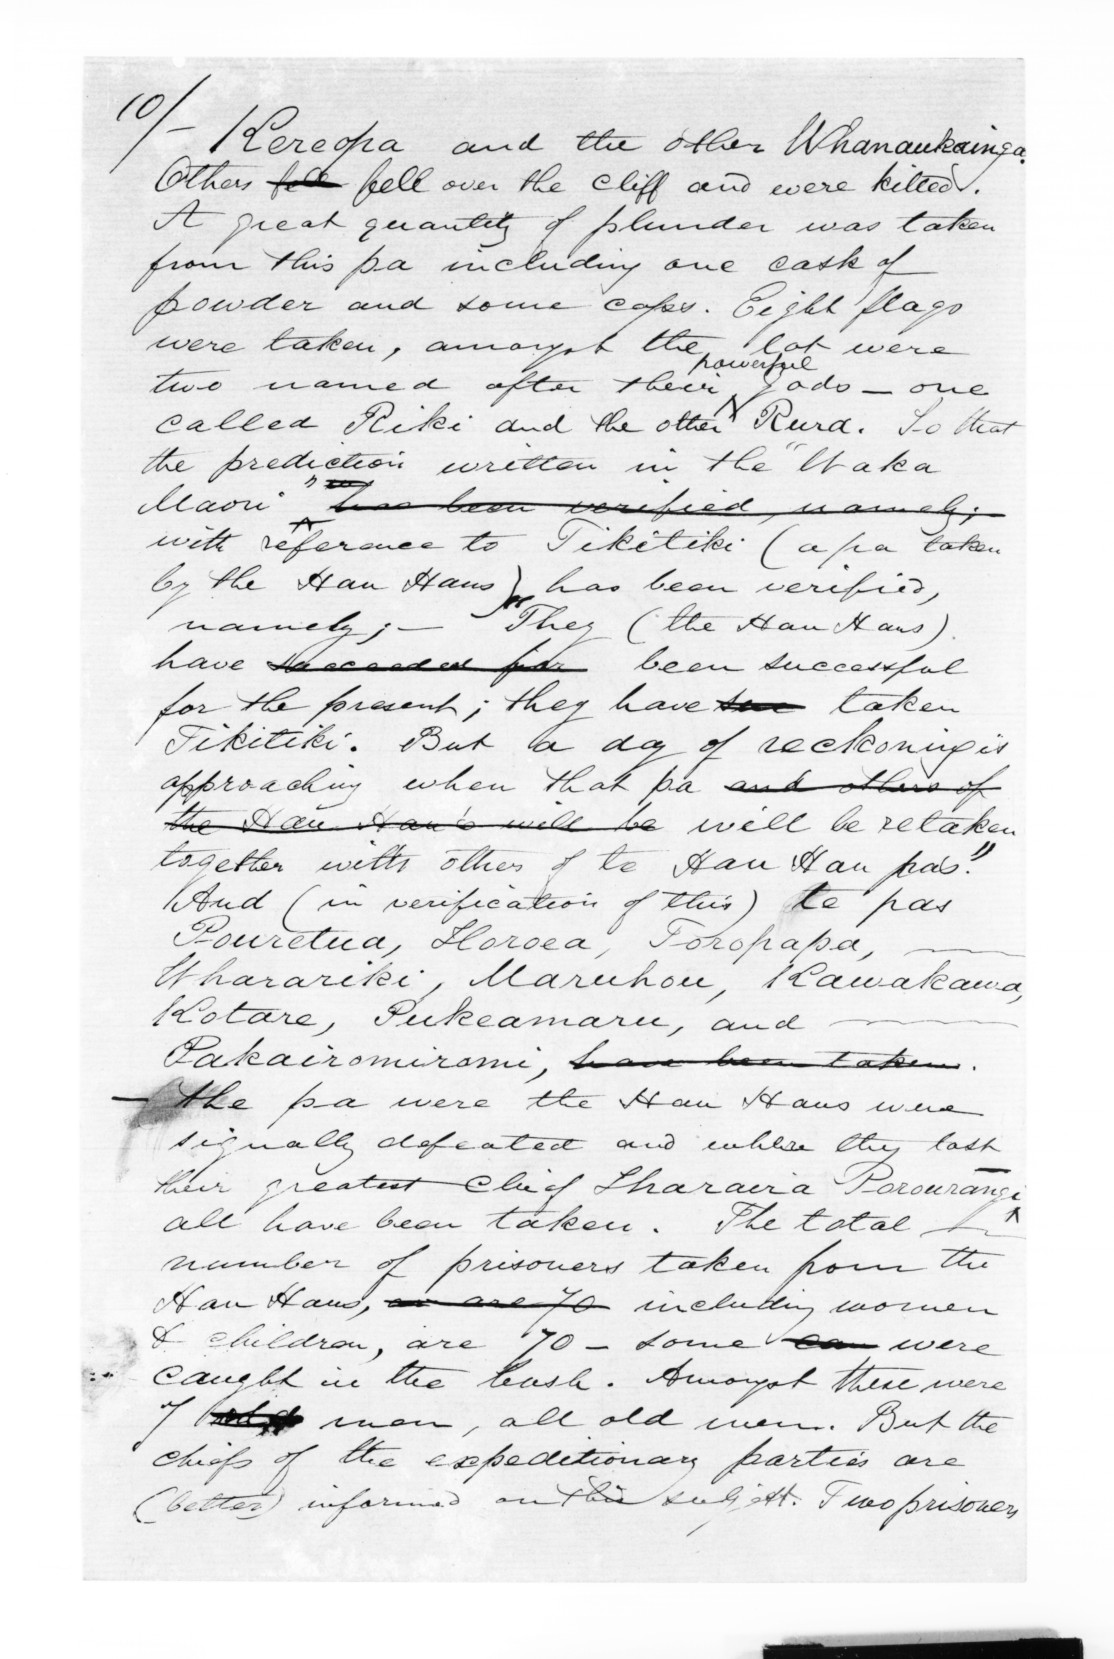 10/- Kereopa and the other Whanaukainga.
Others fell fell over the cliff and were killed.
A great quantity of plunder was taken
from this pa including one cask of
powder and some caps. Eight flags
were taken, amongst the lot were
powerful
two named after their gods — one
called Riki and the other Rura. So that
the prediction written in the "Waka
Maori" has been verified, namely;
with reference to Tikitiki (a pa taken
by the Hau Haus) has been verified,
namely; — "They (the Hau Haus)
have succeeded for been successful
for the present; they have taken
Tikitiki. But a day of reckoning is
approaching when that pa and others of
the Hau Hau's will be will be retaken
together with others of te Hau Hau pa's."
And (in verification of this) te pas
Pouretua, Horoea, Toropapa,
Wharariki, Maruhou, Kawakawa,
Kotare, Pukeamaru, and
Pakairomiromi, have been taken.
— the pa were the Hau Haus were
signally defeated and where they lost
their greatest chief Iharaira Porourangi
all have been taken. The total
number of prisoners taken from the
Hau Haus, are 70 including women
& children, are 70 — some were
caught in the bush. Amongst these were
7 men, all old men. But the
chiefs of the expeditionary parties are
(better) informed on this subject. Two prisoners